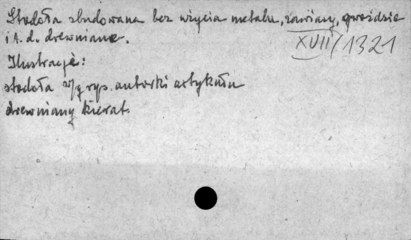 Stodoła zbudowana bez użycia metalu, zawiasy, gwoździe
i t. d. drewniane.
XVII/1321
Ilustracje:
stodoła w/g rys. autorki artykułu
drewniany kierat